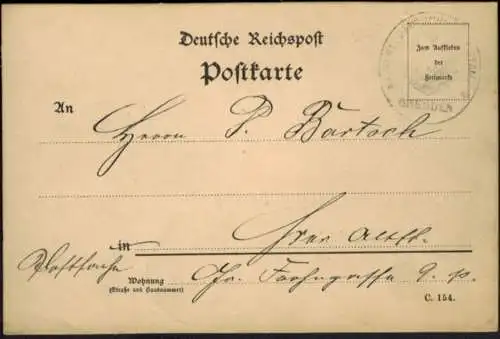 Deutsche Reichspost
Postkarte
Zum Aufkleben
der
Freimarke
DRESDEN
An
Herrn P. Bartsch
in
Hier Altst.
Postsache
Wohnung
(Straße und Hausnummer)
Gr. 9. p.
C. 154.